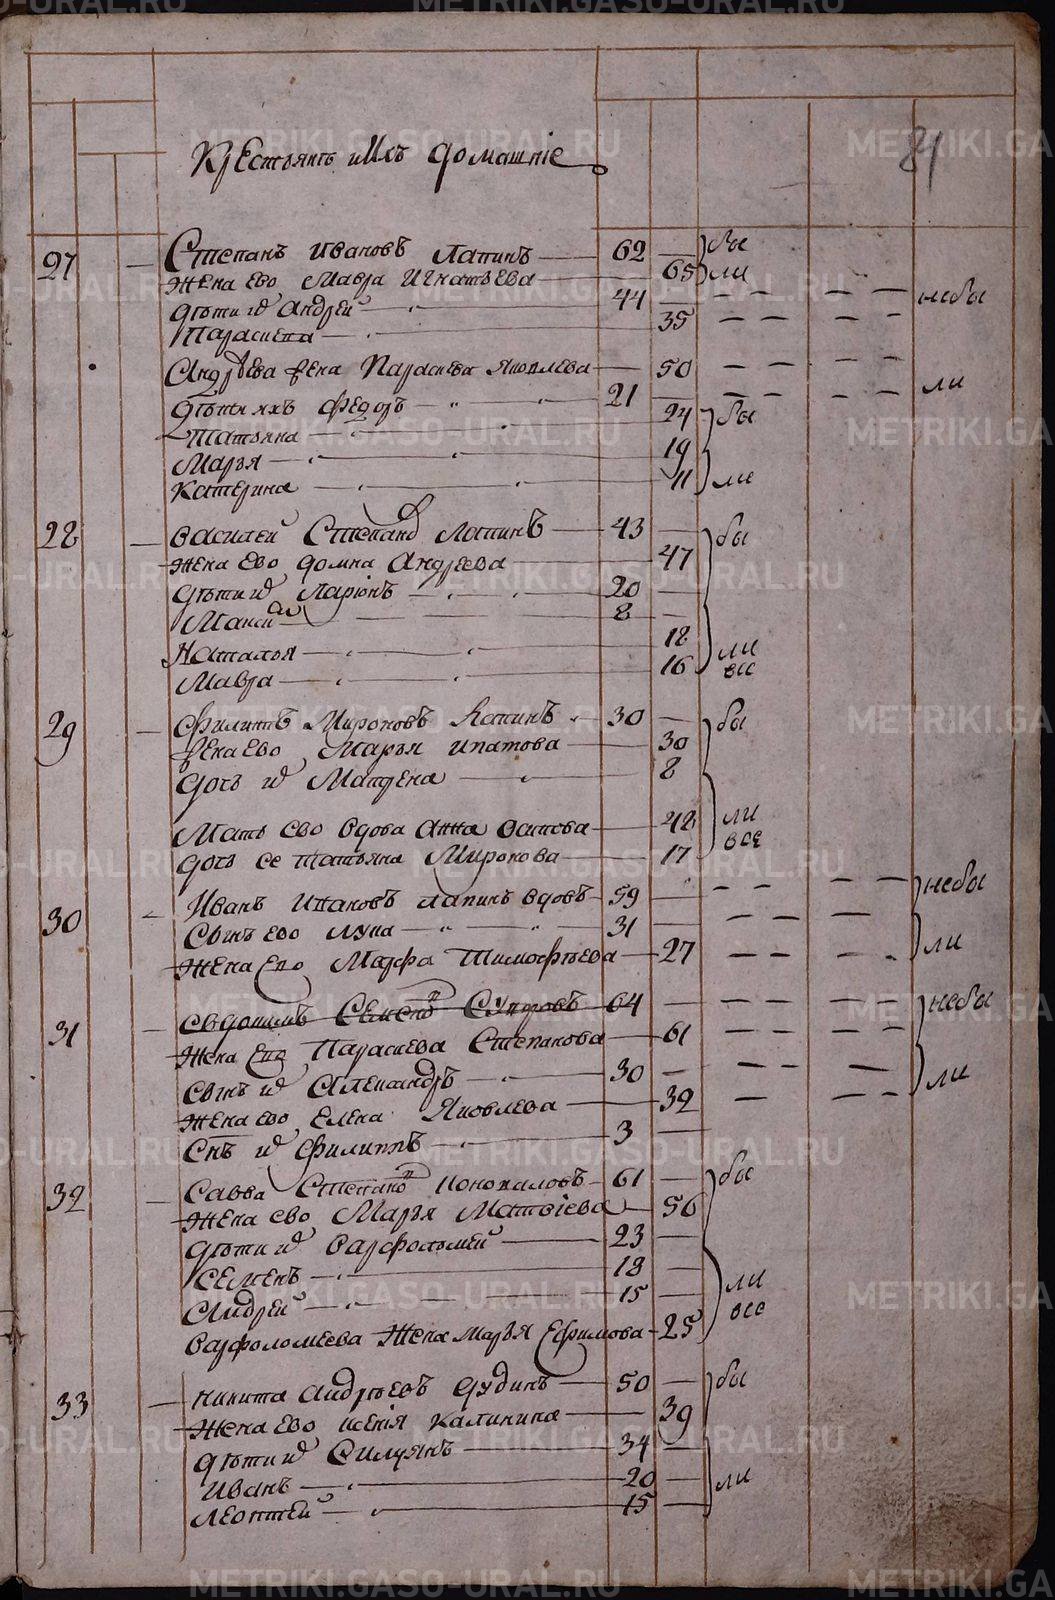 84
Крестьянъ и ихъ домашніе
27 Степанъ Ивановъ Лапинъ 62 бы
Жена ево Мавра Игнатьева 65 ли
дѣти ихъ Андрей 44 небы
Параскева 35
Андрѣева жена Параскева Яковлева 50 ли
Дѣти ихъ Федоръ 21
Татьяна 24 бы
Марья 19
Катерина 11 ли
28 Василей Степановъ Лапинъ 43 бы
Жена ево Домна Андреева 47
дѣти ихъ Ларіонъ 20
8
Наталья 18 ли
Мавра 16 все
29 Филипъ Мироновъ Лапинъ 30 бы
жена ево Марья Ипатова 30
дочь их 8
Мать ево вдова Анна Осипова 48 ли
дочь ее Татьяна Миронова 17 все
30 Иванъ Ивановъ Лапинъ вдовъ 59 небы
Сынъ ево Лука 31
Жена ево Марфа Тимофѣева 27 ли
31 Евдокимъ Семеновъ 64 небы
Жена ево Параскева Степанова 61
сынъ их Александръ 30 ли
Жена ево Елена Яковлева 32
Снъ их Филиппъ 3
32 Савва Степановъ Коноваловъ 61 бы
Жена ево Марья Матвіева 56
дѣти их Варфоломей 23
Семенъ 18 ли
Андрей 15 все
Варфоломеева Жена Марья Ефимова 25
33 Никита Андрѣевъ 50 бы
Жена ево Ксенія Калинина 39
дѣти их Силуянъ 34
Иванъ 20 ли
Леонтей 15
METRIKI.GASO-URAL.RU